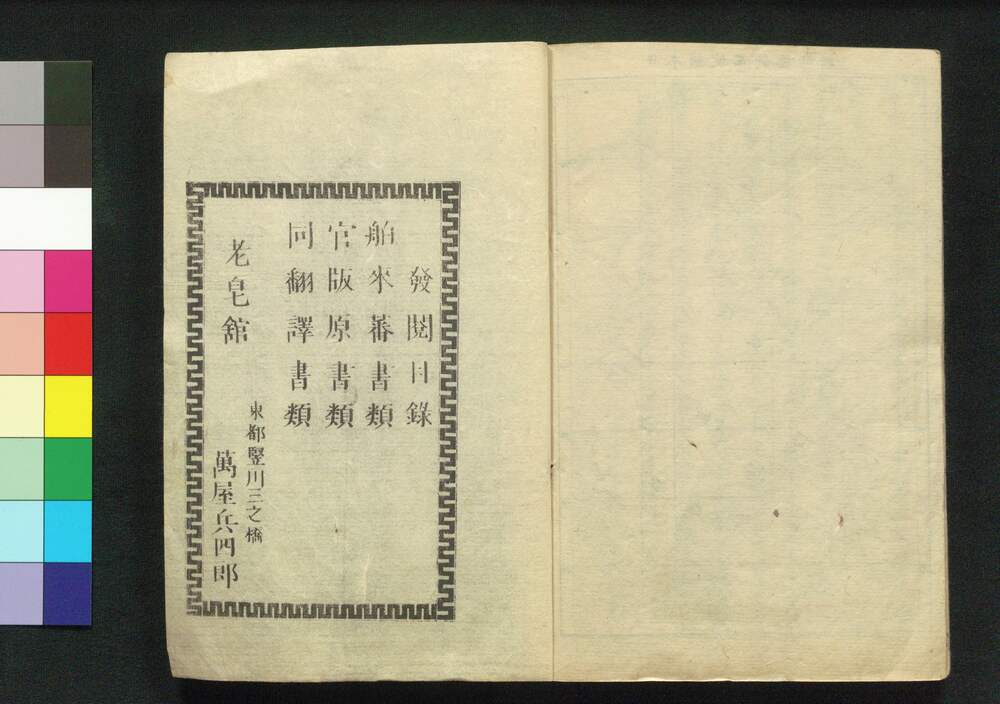 發閲目錄
舶來蕃書類
官版原書類
同翻譯書類
老皂館
東都竪川三之橋
萬屋兵四郎